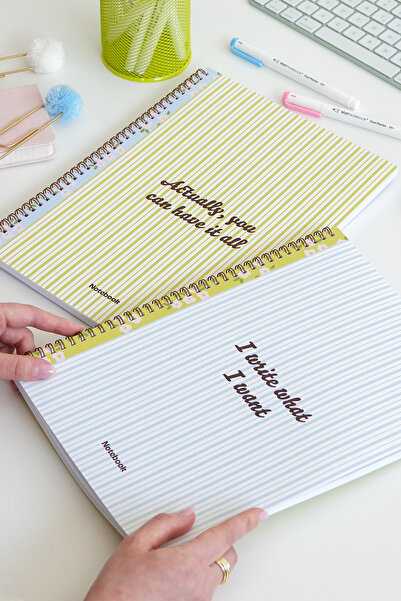 Actually, you
can have it all
Notebook
I write what
I want
Notebook